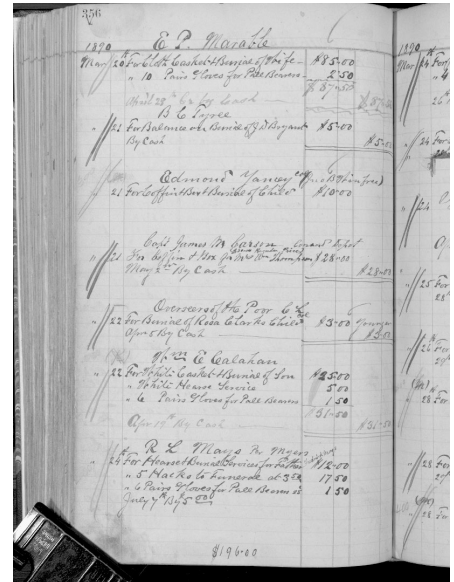 356
1890 E. P. Marable
Mar 20 For Cloth Casket & Burial of Wife $85.00
" 10 Pairs Gloves for Pall Bearers 2.50
$87.50
April 28th By Cash $87.50
B. C. Tyree
" 21 For Balance on Burial of J D Bryant $5.00
By Cash $5.00
Edmond Yancey col
" 21 For Coffin Box & Burial of Child $10.00
Capt James W Carson
" 21 For Coffin & Box for Mrs Wm Thompson $28.00
May 2nd By Cash $28.00
Overseers of the Poor
" 22 For Burial of Rosa Clarks Child $3.00
Apr 5 By Cash $3.00
E Calahan
" 22 For White Casket & Burial of Son $25.00
" White Hearse Service 5.00
" 6 Pairs Gloves for Pall Bearers 1.50
$31.50
Apr 19th By Cash $31.50
R. L. Mays Per Myers
" 24 For Hearse & Burial Services for Father $12.00
" 5 Hacks to Funeral at 3.50 17.50
" 6 Pairs Gloves for Pall Bearers 1.50
July 7th By 5.00
$196.00
1890
Mar 24 For
26th
" 24 For
" 24
" 25 For
28th
" 26 For
" 28 For
" 28 For
" 28 For